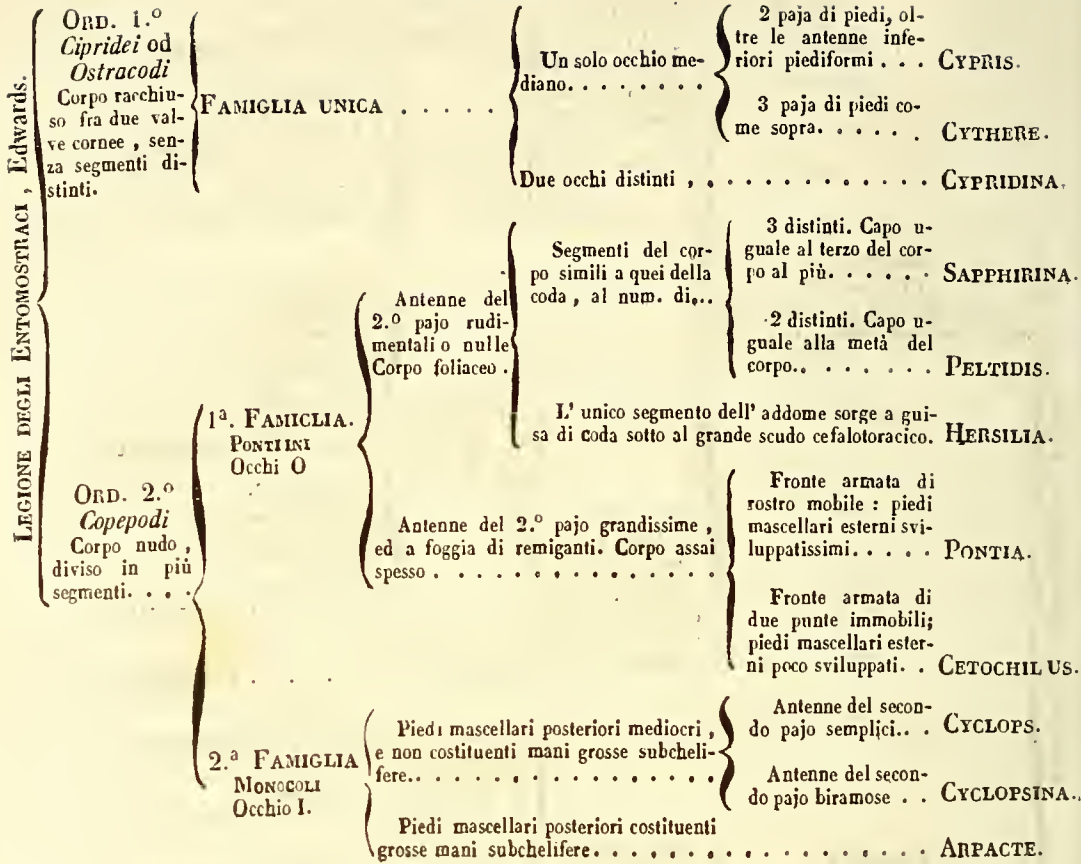 LEGIONE DEGLI ENTOMOSTRACI, Edwards.
ORD. 1.º
Cipridei od
Ostracodi
Corpo racchiu-
so fra due val-
ve cornee , sen-
za segmenti di-
stinti.
FAMIGLIA UNICA . . . . .
Un solo occhio me-
diano. . . . . . . . .
2 paja di piedi, ol-
tre le antenne infe-
riori piediformi . . . CYPRIS.
3 paja di piedi co-
me sopra. . . . . . CYTHERE.
Due occhi distinti , . . . . . . . . . . . . . CYPRIDINA.
ORD. 2.º
Copepodi
Corpo nudo ,
diviso in più
segmenti. . . .
1ª. FAMICLIA.
PONTIINI
Occhi O
Antenne del
2.º pajo rudi-
mentali o nulle
Corpo foliaceo .
Segmenti del cor-
po simili a quei della
coda , al num. di...
3 distinti. Capo u-
guale al terzo del cor-
po al più. . . . . . SAPPHIRINA.
2 distinti. Capo u-
guale alla metà del
corpo.. . . . . . . PELTIDIS.
L' unico segmento dell' addome sorge a gui-
sa di coda sotto al grande scudo cefalotoracico. HERSILIA.
Antenne del 2.º pajo grandissime ,
ed a foggia di remiganti. Corpo assai
spesso . . . . . . . . . . . . . . .
Fronte armata di
rostro mobile : piedi
mascellari esterni svi-
luppatissimi. . . . . PONTIA.
Fronte armata di
due punte immobili;
piedi mascellari ester-
ni poco sviluppati. . CETOCHILUS.
2.ª FAMIGLIA
MONOCOLI
Occhio I.
Piedi mascellari posteriori mediocri ,
e non costituenti mani grosse subcheli-
fere.. . . . . . . . . . . . . . . .
Antenne del secon-
do pajo semplici.. . CYCLOPS.
Antenne del secon-
do pajo biramose . . CYCLOPSINA.
Piedi mascellari posteriori costituenti
grosse mani subchelifere. . . . . . . . . . . . . . . . ARPACTE.